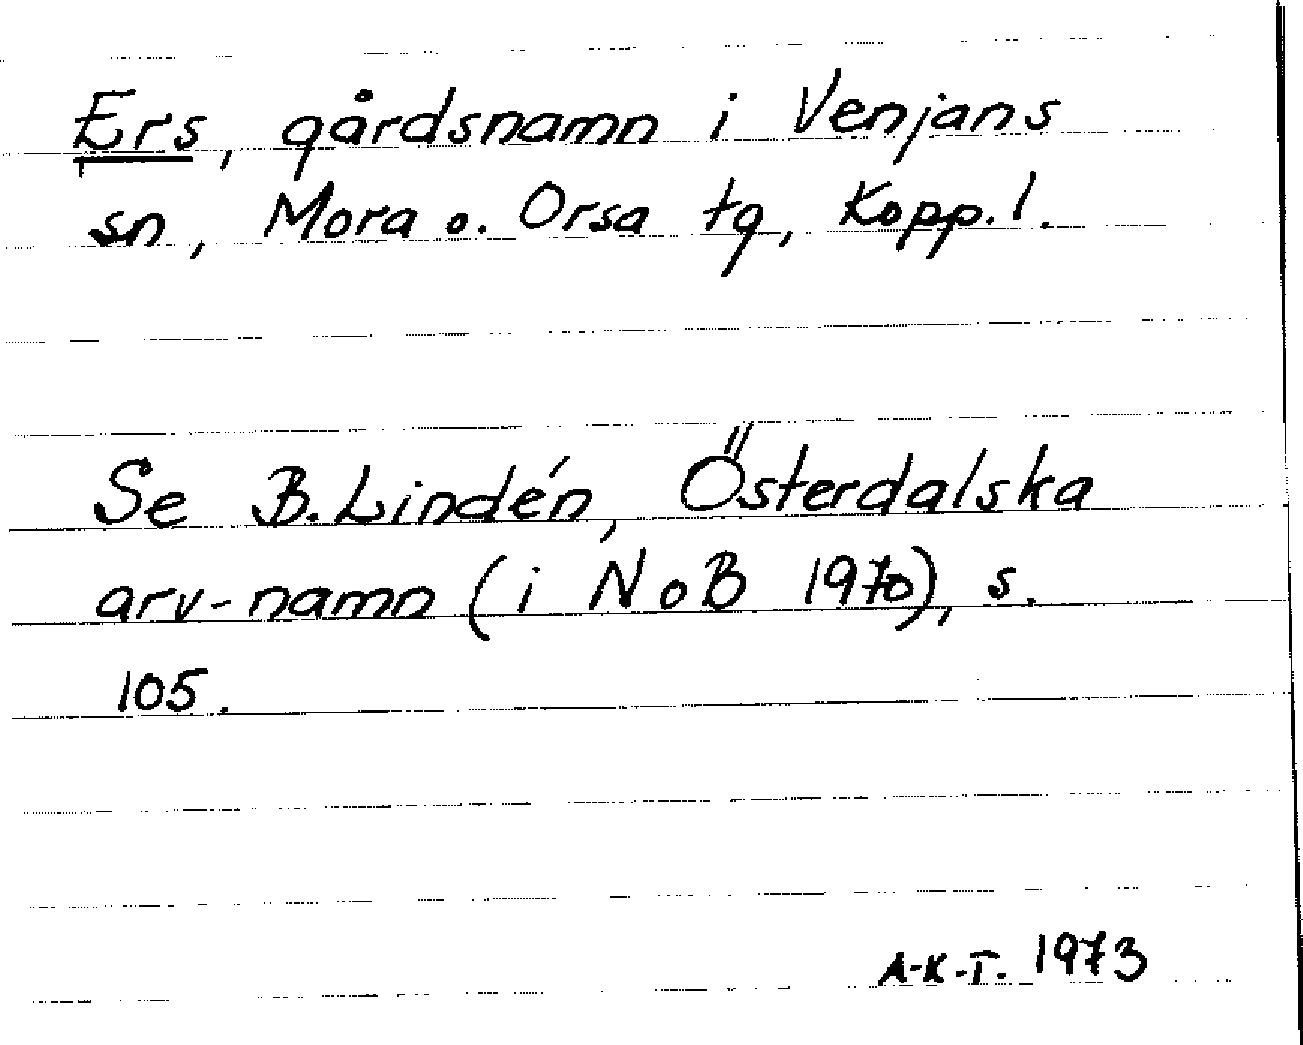 Ers, gårdsnamn i Venjans
sn, Mora o. Orsa tg, Kopp. l.
Se B. Lindén, Österdalska
arv-namn (i NoB 1970), s.
105.
A-K-T. 1973